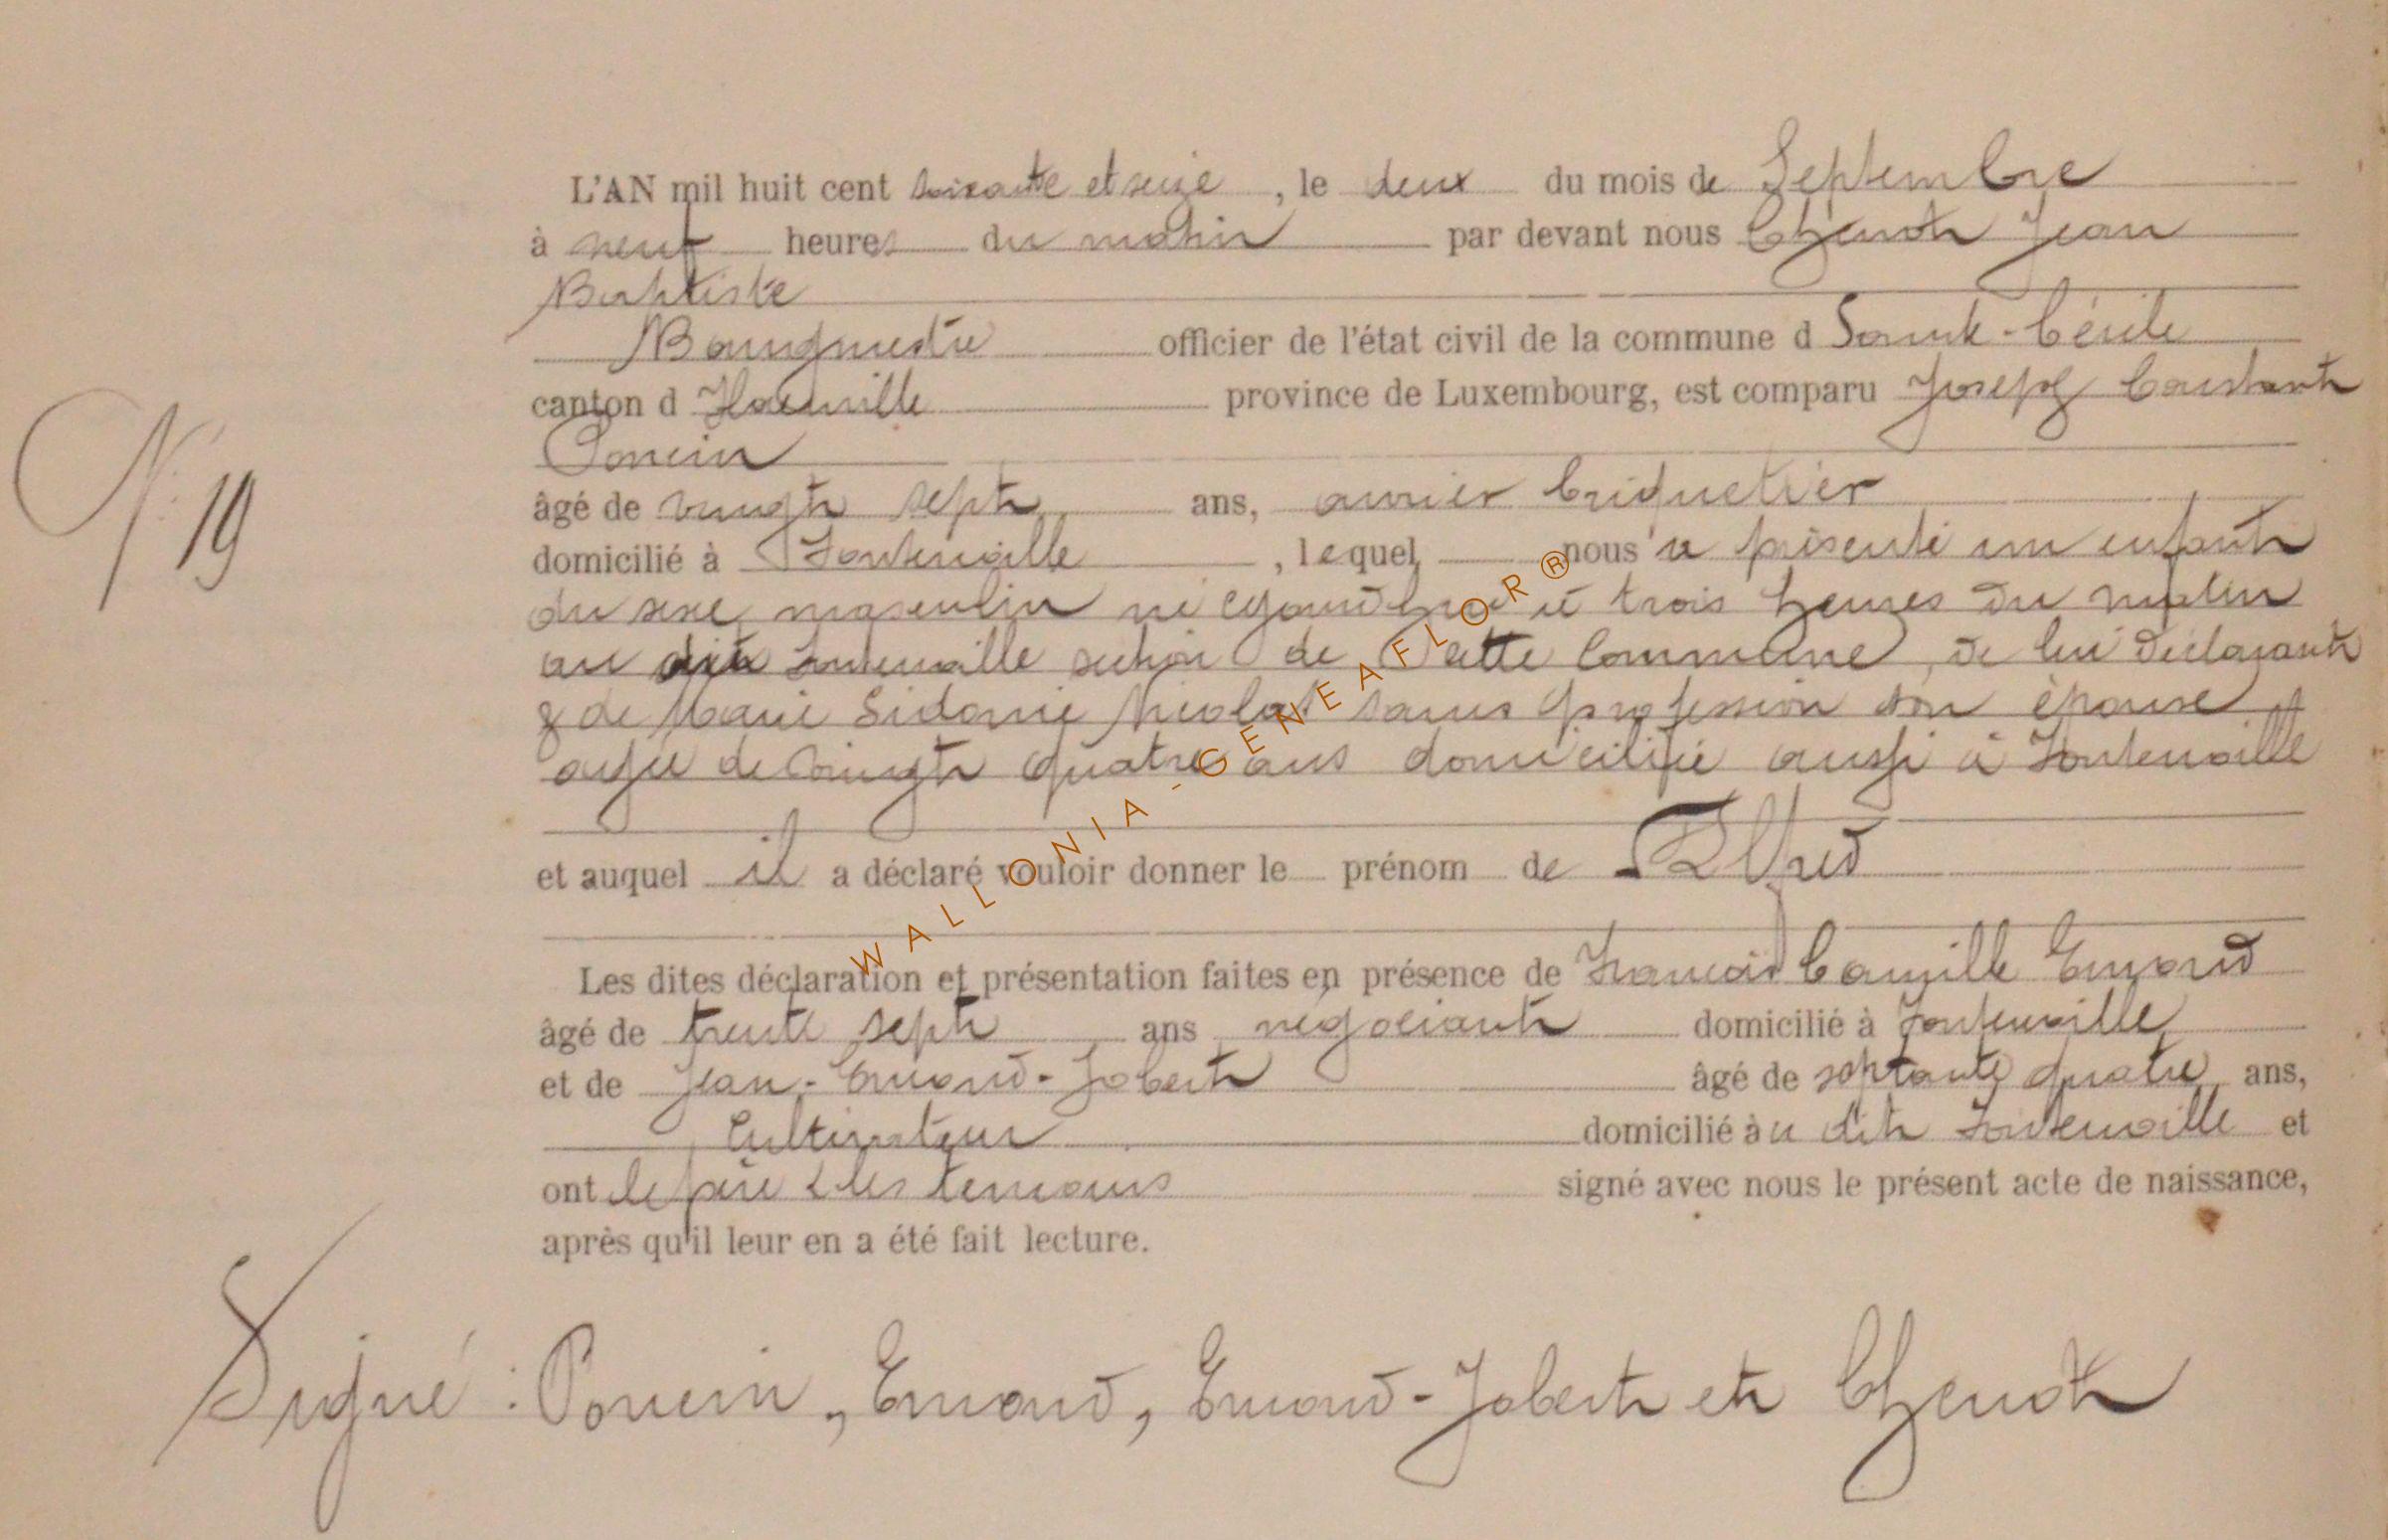 L'AN mil huit cent soixante et seize, le deux du mois de Septembre
à neuf heures du matin par devant nous Chenot Jean
Baptiste
Bourgmestre officier de l'état civil de la commune d Sainte-Cécile
canton d Florenville province de Luxembourg, est comparu Joseph Constant
Poncin
âgé de vingt sept ans, ouvrier briquetier
domicilié à Fontenoille, lequel nous a présenté un enfant
du sexe masculin né aujourd'hui à trois heures du matin
au dit Fontenoille section de Cette Commune, de lui déclarant
& de Marie Sidonie Nicolas sans profession son épouse
agée de vingt quatre ans domiciliée aussi à Fontenoille
et auquel il a déclaré vouloir donner le prénom de Alfred
Les dites déclaration et présentation faites en présence de François Camille Emond
âgé de trente sept ans négociant domicilié à Fontenoille
et de Jean-Emond-Jobert âgé de septante quatre ans,
Cultivateur domicilié àu dit Fontenoille et
ont le père & les temoins signé avec nous le présent acte de naissance,
après qu'il leur en a été fait lecture.
N° 19
Signé : Poncin, Emond, Emond-Jobert et Chenot
WALLONIA-GENEAFLOR®